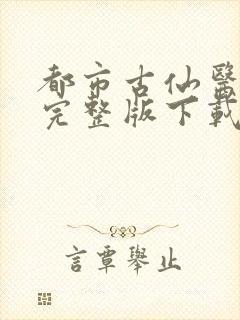 都市古仙醫
完整版下載
言覃舉止